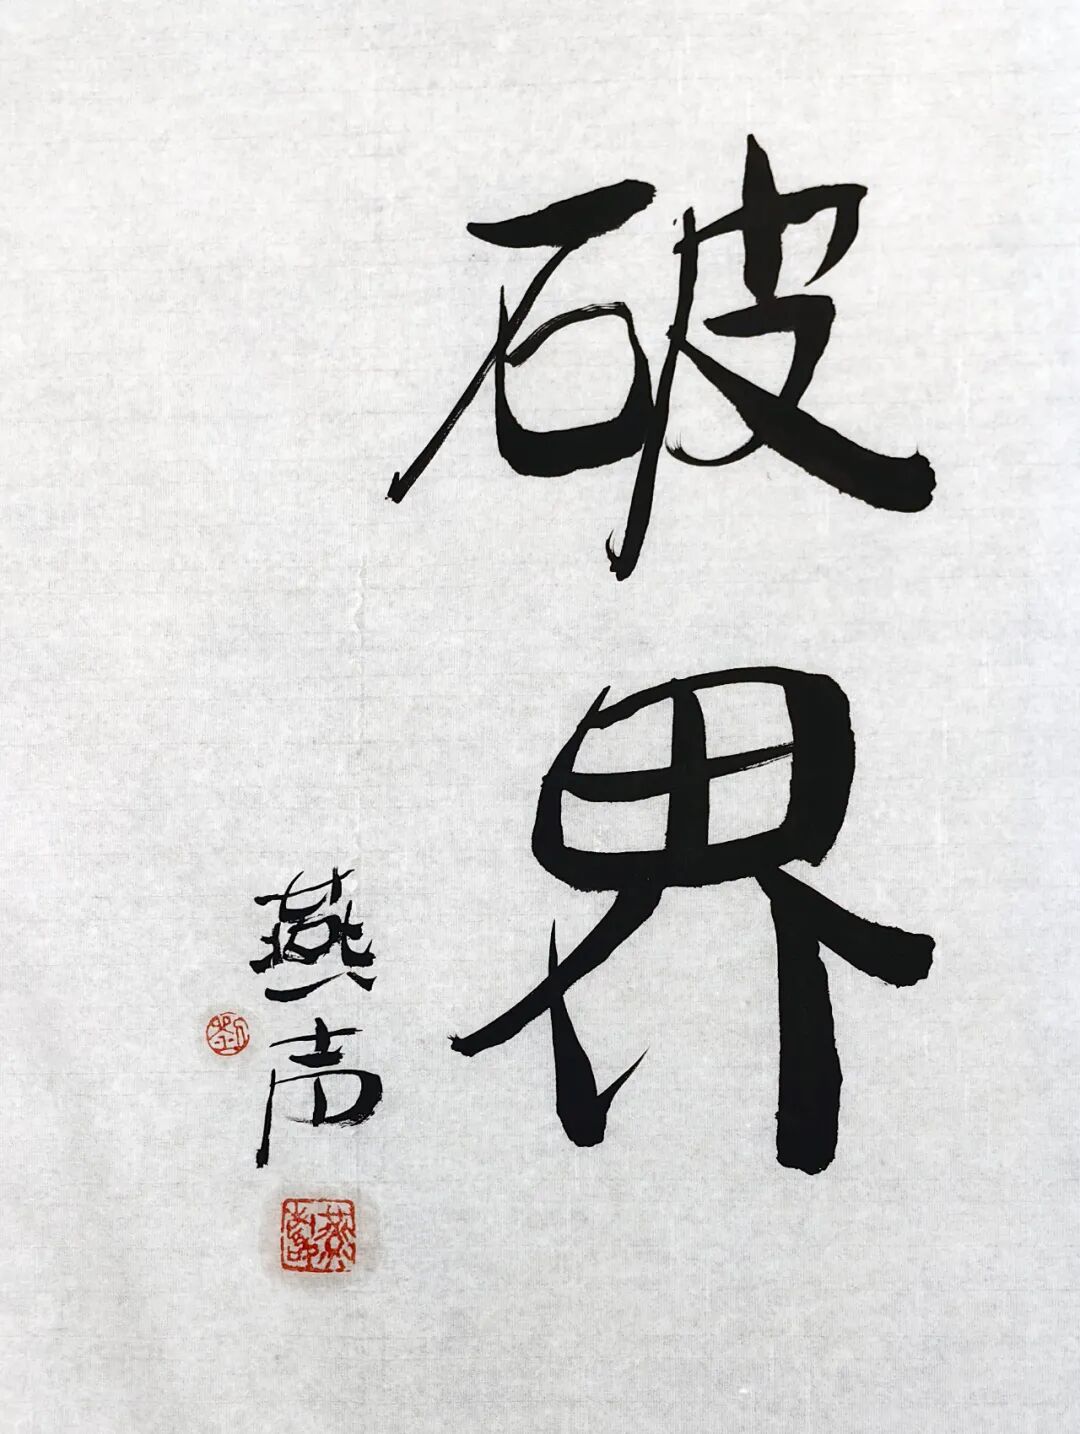 破界
燕声